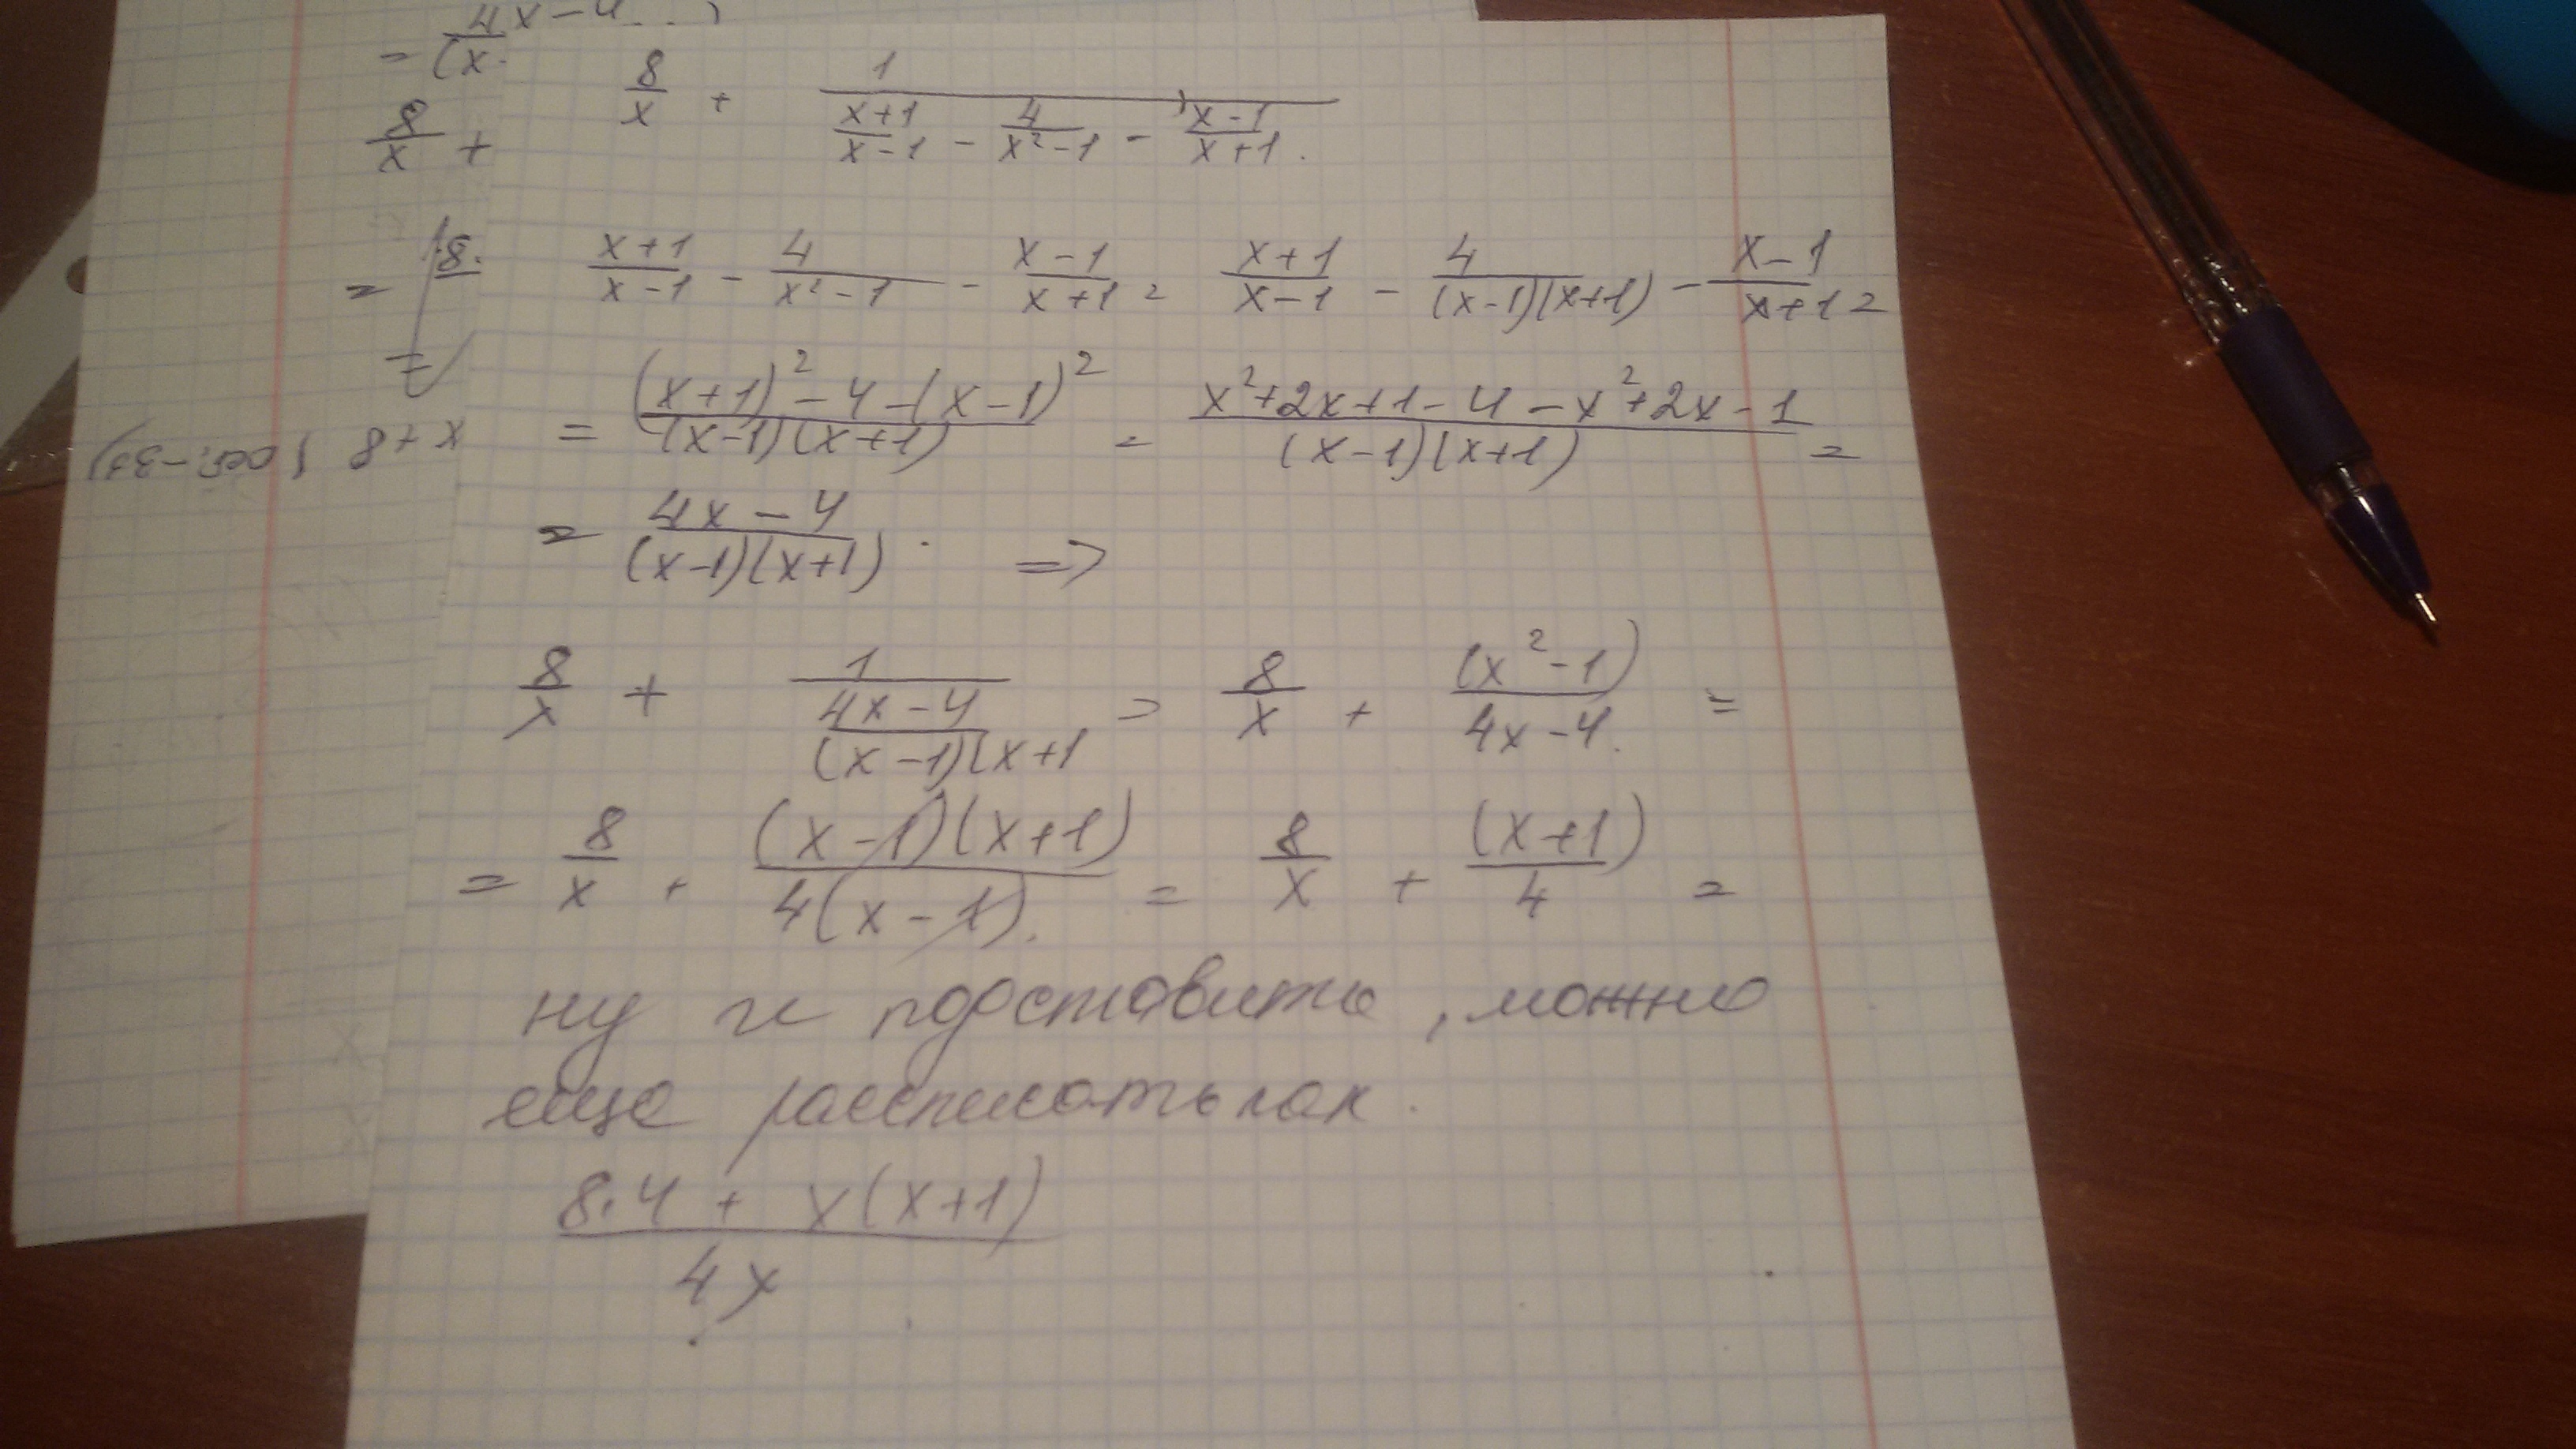 = 4x-4 / (x-
8/x +
= 8.
=
x+8 (ост.-33)
8/x + 1 / ((x+1)/(x-1) - 4/(x²-1) - (x-1)/(x+1)).
(x+1)/(x-1) - 4/(x²-1) - (x-1)/(x+1) = (x+1)/(x-1) - 4/((x-1)(x+1)) - (x-1)/(x+1) =
= ((x+1)²-4-(x-1)²)/((x-1)(x+1)) = (x²+2x+1-4-x²+2x-1)/((x-1)(x+1)) =
= (4x-4)/((x-1)(x+1)) . =>
8/x + 1/((4x-4)/((x-1)(x+1)) = 8/x + (x²-1)/(4x-4). =
= 8/x + (x-1)(x+1)/(4(x-1)). = 8/x + (x+1)/4 =
ну и подставить, можно
еще рассписать как.
(8·4 + x(x+1))/(4x)